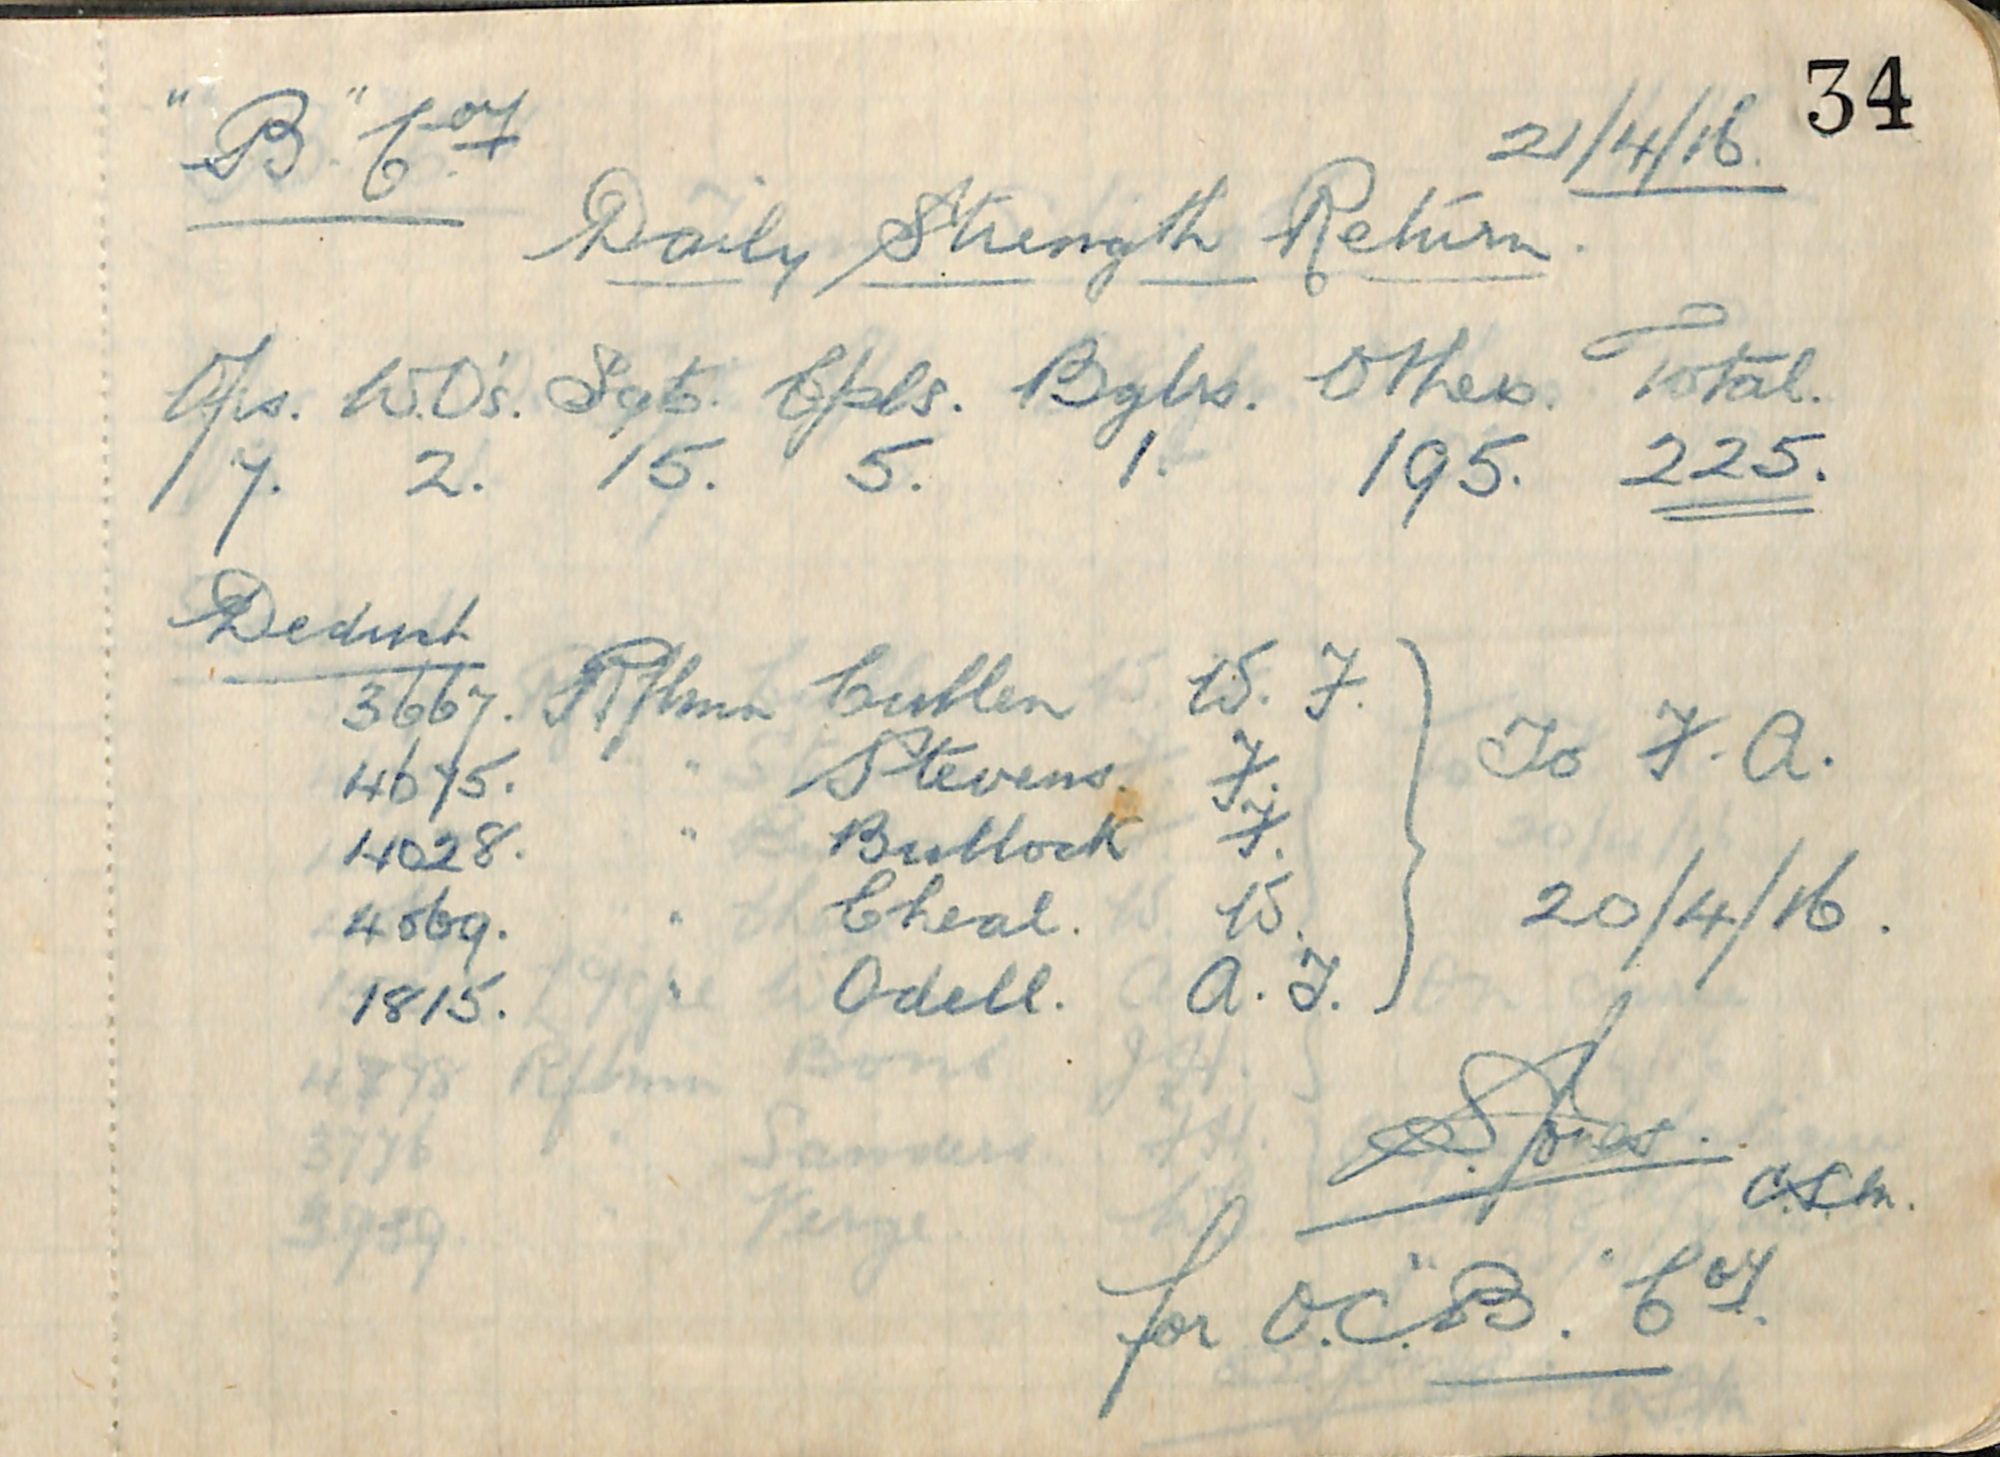 34
"B" Coy
21/4/16.
Daily Strength Return.
Ofrs. W.O's. Sgts. Cpls. Bglrs. Others. Total.
7. 2. 15. 5. 1. 195. 225.
Deduct
3667. Rflmn Cullen W. F.
4675. " Stevens. F.
4028. " Bullock F.
4069. " Cheal. W.
1815. " Odell. A. F.
To F. A.
20/4/16.
S. Jones.
C.S.M.
for O.C. "B". Coy.
Rflmn Bone J.H.
3776 " Sanders
3939. " Verge.